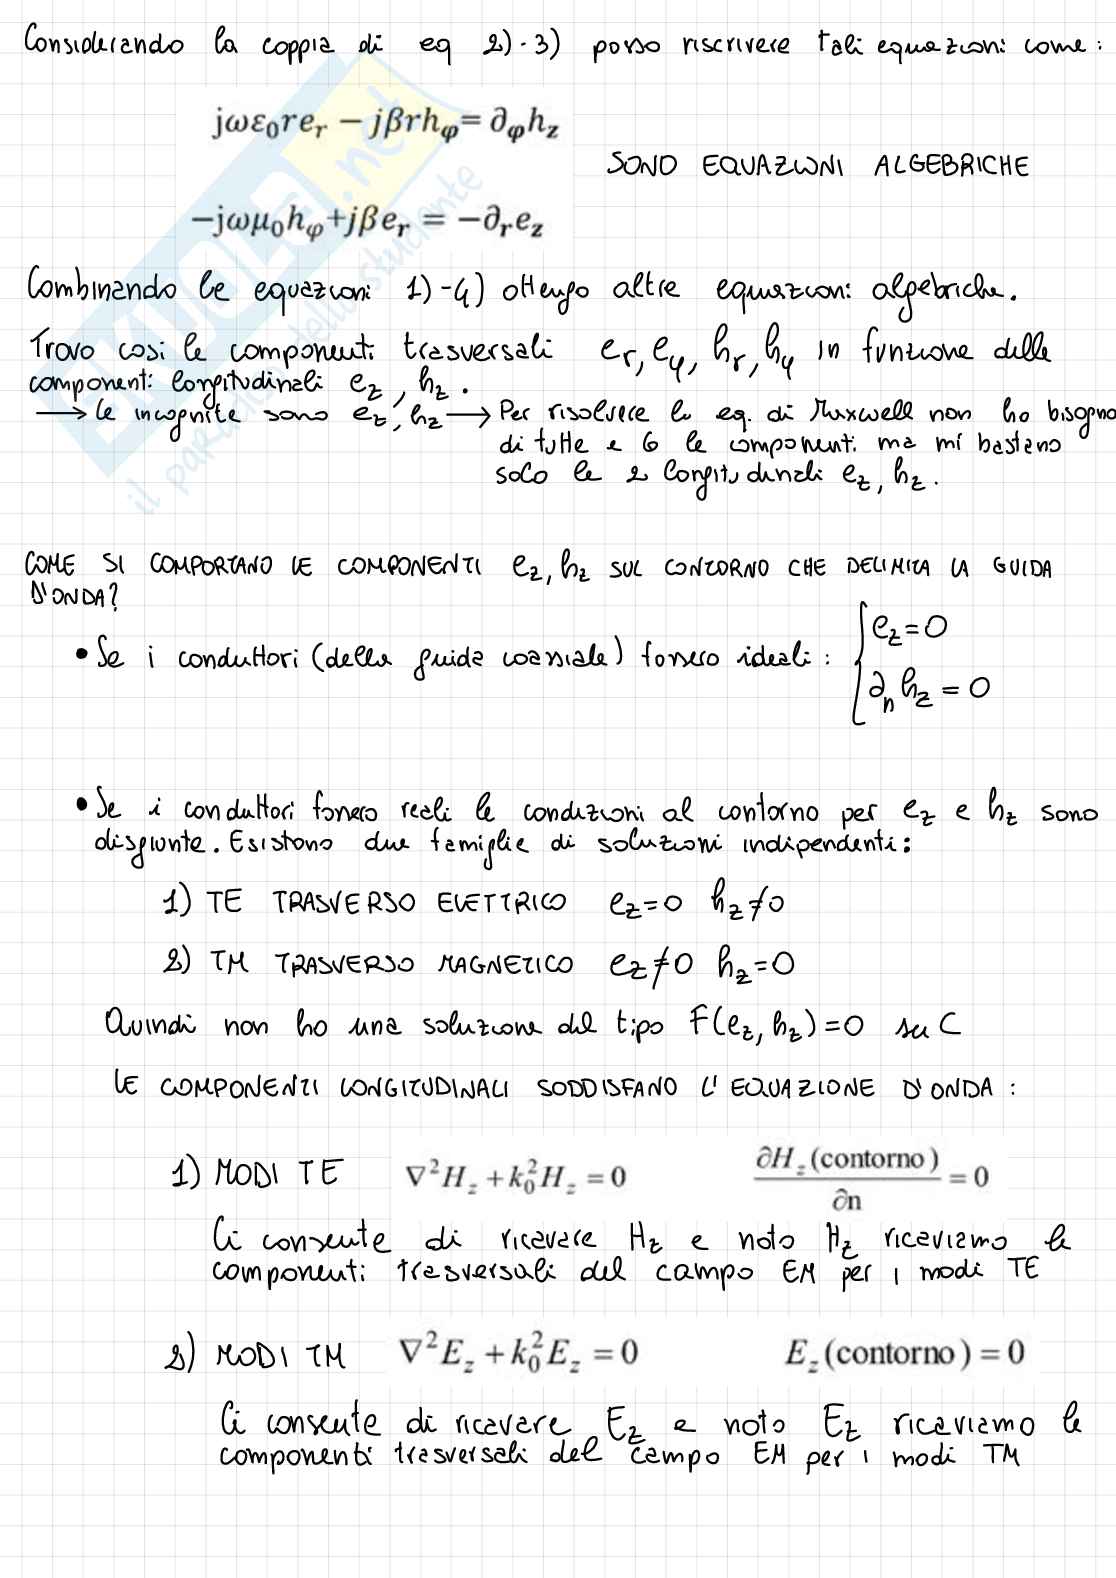 Considerando la coppia di eq 2)-3) posso riscrivere tali equazioni come:
jωε₀re_r − jβrh_φ = ∂_φh_z
SONO EQUAZIONI ALGEBRICHE
−jωμ₀h_φ+jβe_r = −∂_re_z
Combinando le equazioni 1)-4) ottengo altre equazioni algebriche.
Trovo così le componenti trasversali e_r, e_φ, h_r, h_φ in funzione delle
componenti longitudinali e_z, h_z.
→ le incognite sono e_z, h_z → Per risolvere le eq. di Maxwell non ho bisogno
di tutte e 6 le componenti ma mi bastano
solo le 2 longitudinali e_z, h_z.
COME SI COMPORTANO LE COMPONENTI e_z, h_z SUL CONTORNO CHE DELIMITA LA GUIDA
D'ONDA?
• Se i conduttori (della guida coassiale) fossero ideali: { e_z = 0
∂_n h_z = 0
• Se i conduttori fossero reali le condizioni al contorno per e_z e h_z sono
disgiunte. Esistono due famiglie di soluzioni indipendenti:
1) TE TRASVERSO ELETTRICO e_z=0 h_z≠0
2) TM TRASVERSO MAGNETICO e_z≠0 h_z=0
Quindi non ho una soluzione del tipo F(e_z, h_z)=0 su C
LE COMPONENTI LONGITUDINALI SODDISFANO L'EQUAZIONE D'ONDA:
1) MODI TE ∇²H_z + k₀²H_z = 0 ∂H_z(contorno)/∂n = 0
Ci consente di ricavare H_z e noto H_z ricaviamo le
componenti trasversali del campo EM per i modi TE
2) MODI TM ∇²E_z + k₀²E_z = 0 E_z(contorno) = 0
Ci consente di ricavare E_z e noto E_z ricaviamo le
componenti trasversali del campo EM per i modi TM
SKUOLA.net